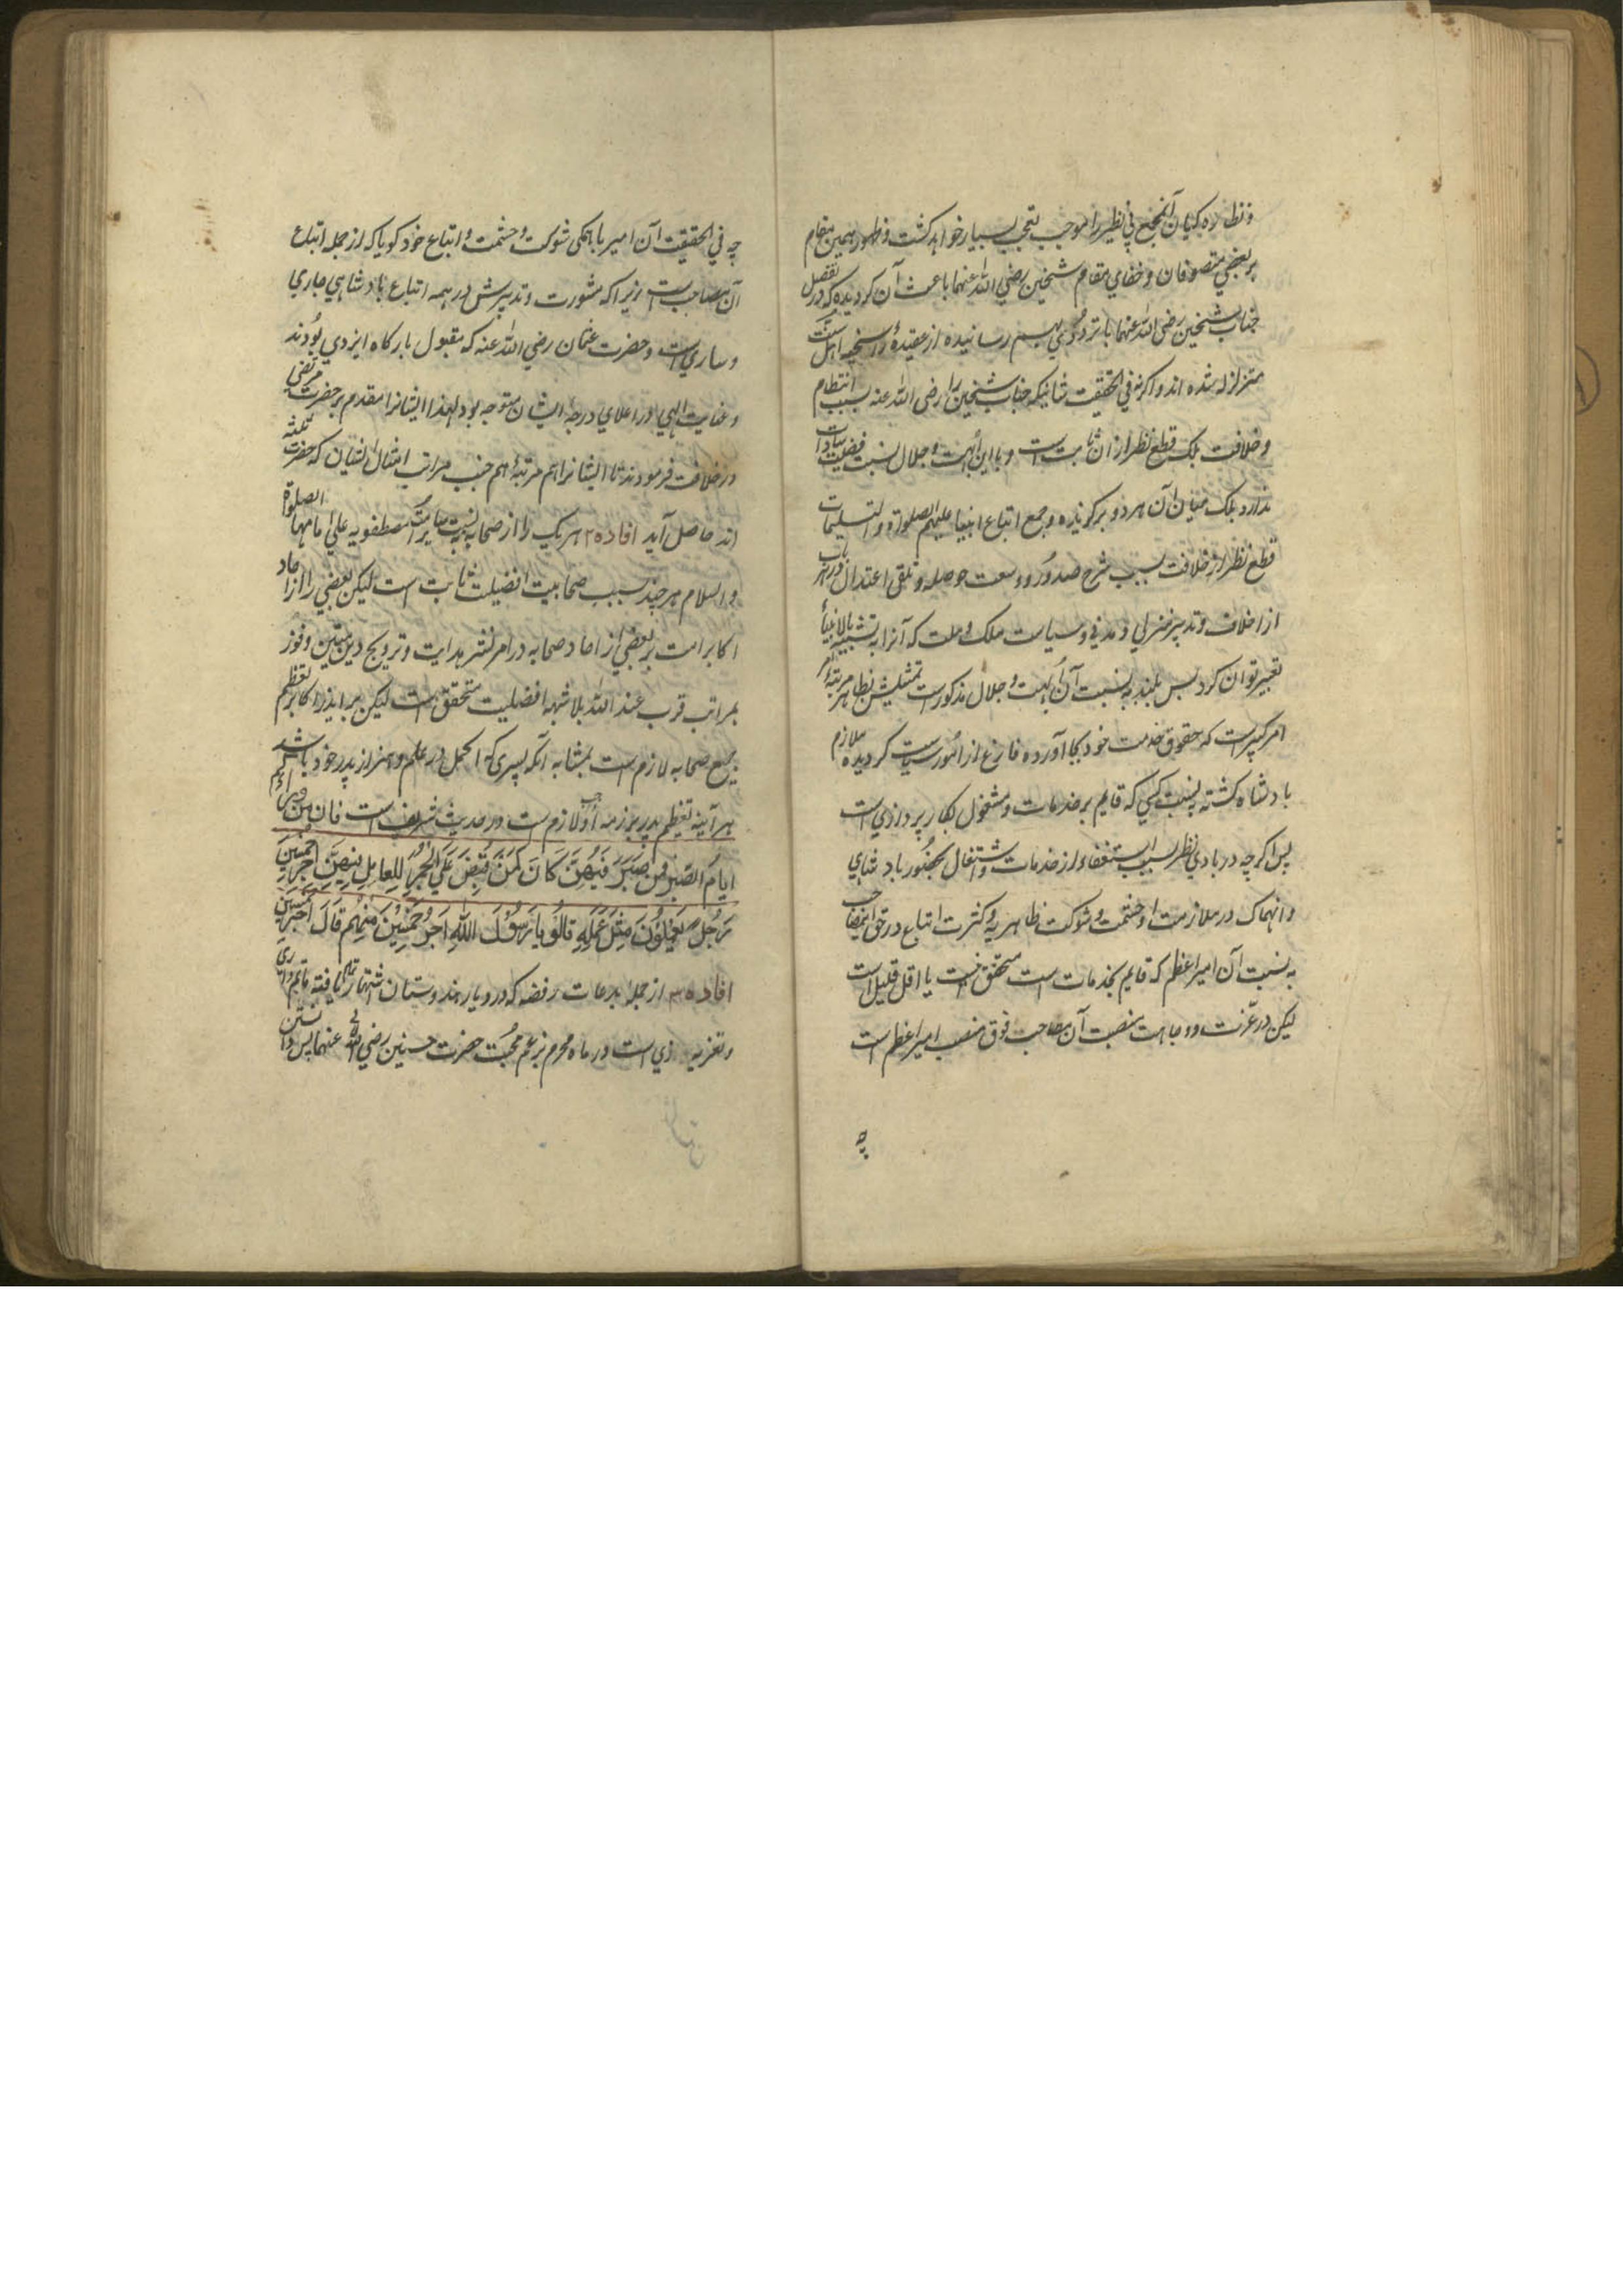 و نظاره کیان آن مجمع بی نظیر را موجب تعجب بسیار خواهد گشت و ظهور همین مقام
بر بعضی متصوفان و خفای مقام شیخین رضی الله عنهما باعث آن گردیده که در تفضیل
جناب شیخین رضی الله عنهما با تردد بهم رسانیده از عقیدهٔ راسخهٔ اهل سنت
متزلزل شده اند و اگرنه فی الحقیقت شانیکه جناب شیخین را رضی الله عنه بسبب انتظام
و خلافت بلکه قطع نظر از ان ثابت است و با این ابهت و جلال نسبت فضیلت
ندارد بلک میان آن هر دو برگزیده و جمع اتباع انبیا علیهم الصلوة و التسلیمات
قطع نظر از خلافت بسبب شرح صدور و وسعت حوصله و تلقی اعتدال در هر باب
از اخلاق و تدبیر منزلی و مدنی و سیاست ملک و ملت که آنرا به تشبیه بالانبیا
تعبیر توان کرد بس بلند به نسبت آن ابهت و جلال مذکور است تمثیلش بظاهر مرتبهٔ
امیر کبیر است که حقوق خدمت خود بجا آورده فارغ از امور سیاست گردیده ملازم
بادشاه گشته به نسبت کسی که قایم بر خدمات و مشغول بکار پردازی است
پس اگرچه در بادی نظر بسبب استعفاء از خدمات و اشتغال بحضور بادشاهی
و انهماک در ملازمت او حشمت و شوکت ظاهریه و کثرت اتباع در حق این مصاحب
به نسبت آن امیر اعظم که قایم بخدمات است متحقق نیست یا اقل قلیل است
لیکن در عزت و وجاهت منصب آن مصاحب فوق منصب امیر اعظم است
چه
چه فی الحقیقت آن امیر با همگی شوکت و حشمت و اتباع خود گویا که از جمله اتباع
آن مصاحب است زیرا که مشورت و تدبیرش در همه اتباع بادشاهی جاری
و ساری است و حضرت عثمان رضی الله عنه که مقبول بارگاه ایزدی بودند
و عنایت الهی در اعلای درجه ایشان متوجه بود لهذا ایشانرا مقدم بر حضرت مرتضی
در خلافت فرمودند تا ایشانرا هم مرتبهٔ هم جنب مراتب امثال ایشان که حضرت ثلثه
اند حاصل آید افاده ۲ هر یک را از صحابه به نسبت سایر امت مصطفویه علی امامها الصلوة
والسلام هر چند بسبب صحابیت افضلیت ثابت است لیکن بعضی را از احاد
اکابر امت بر بعضی از احاد صحابه در امر نشر هدایت و ترویج دین متین و فوز
بمراتب قرب عند الله بلا شبهه افضلیت متحقق است لیکن بر ایذر اکابر تعظیم
جمیع صحابه لازم است بمثابه آنکه پسری که اکمل در علم و هنر از پدر خود باشد
هر آینه تعظیم پدر بر ذمه او لازم است و در حدیث شریف است فان من ورائکم
ایام الصبر فمن صبر فیهن کان کمن قبض علی الجمر للعامل فیهن اجر خمسین
رجلا یعملون مثل عمله قالوا یا رسول الله اجر خمسین منهم قال اجر خمسین
افاده ۳ از جمله بدعات رفضه که در دیار هندوستان اشتهار تمام یافته
و تعزیه سازی است در ماه محرم بزعم محبت حضرت حسنین رضی الله عنهما پس